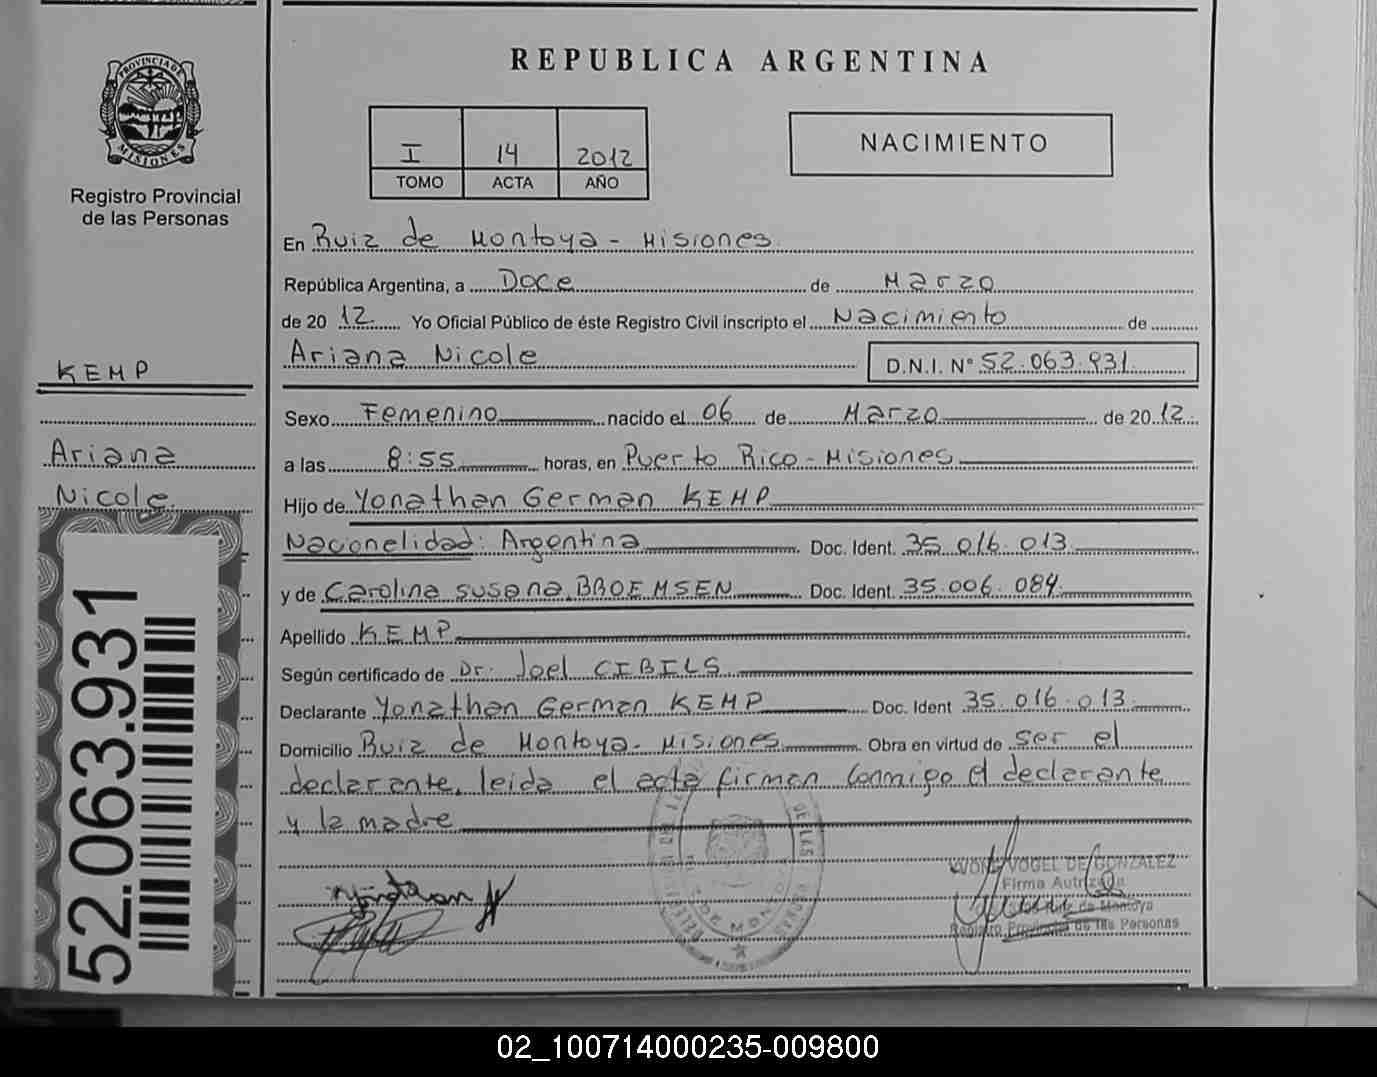 REPUBLICA ARGENTINA
PROVINCIA DE
MISIONES
Registro Provincial
de las Personas
I 14 2012
TOMO ACTA AÑO
NACIMIENTO
En Ruiz de Montoya - Misiones
República Argentina, a Doce de Marzo
de 20 12 Yo Oficial Público de éste Registro Civil inscripto el Nacimiento de
Ariana Nicole
D.N.I. N° 52.063.931
KEMP
Ariana
Nicole
Sexo Femenino nacido el 06 de Marzo de 20 12
a las 8:55 horas, en Puerto Rico - Misiones
Hijo de Yonathan German KEMP
Nacionalidad: Argentina Doc. Ident. 35.016.013
y de Carolina Susana BROEMSEN Doc. Ident. 35.006.084
Apellido KEMP
Según certificado de Dr. Joel CIBILS
Declarante Yonathan German KEMP Doc. Ident 35.016.013
Domicilio Ruiz de Montoya - Misiones Obra en virtud de ser el
declarante, leida el acta firman conmigo el declarante
y la madre
52.063.931
DE LAS
VOGEL DE GONZALEZ
Firma
Ruiz de Montoya
Registro Provincial de las Personas
02_100714000235-009800